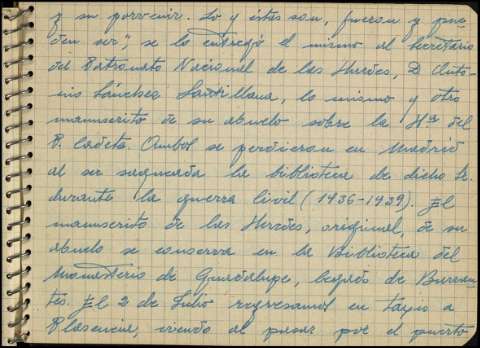 y su porvenir. Lo y éstas son, fueron y pue
den ser", se lo entregó él mismo al secretario
del Patronato Nacional de las Hurdes, D. Anto-
nio Sánchez Santillana, lo mismo y otro
manuscrito de su abuelo sobre la Hª del
P. Cadeta. Ambos se perdieron en Madrid
al ser saqueada la biblioteca de dicho Sr.
durante la guerra civil (1936-1939). El
manuscrito de las Hurdes, original, de su
abuelo se conserva en la Biblioteca del
Monasterio de Guadalupe, legado de Barran
tes. El 2 de Julio regresamos en taxi a
Plasencia, viendo al pasar por el puerto